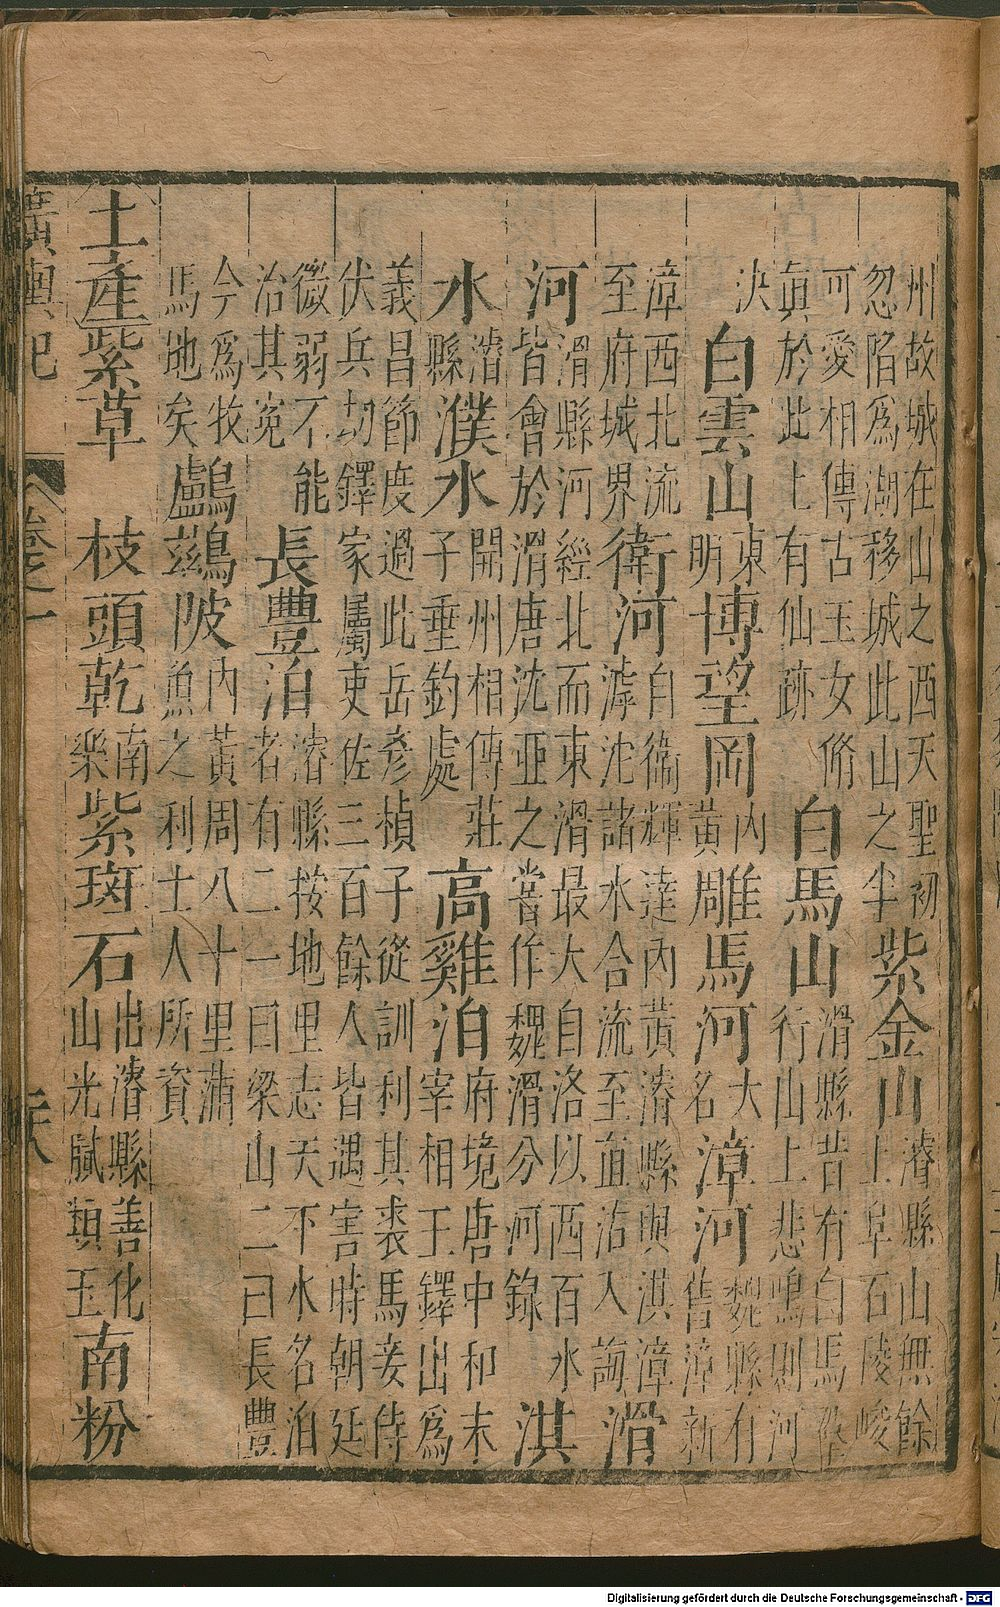 州故城在山之西天聖初
忽陷爲湖移城此山之半
紫金山
濬縣山無餘
土阜石陵峻
可愛相傳古玉女脩
眞於此上有仙跡
白馬山
滑縣昔有白馬
行山上悲鳴則河
決
白雲山
東
明
博望岡
內
黃
雕馬河
大
名
漳河
魏縣有
舊漳新
漳西北流
至府城界
衛河
自衞輝達內黃濬縣與淇漳
滹沱諸水合流至直沽入海
滑
河
滑縣河經北而東滑最大自洛以西百水
皆會於滑唐沈亞之嘗作魏滑分河錄
淇
水
濬
縣
濮水
開州相傳莊
子垂釣處
高雞泊
府境唐中和末
宰相王鐸出爲
義昌節度過此岳彥楨子從訓利其裘馬妾侍
伏兵刧鐸家屬吏佐三百餘人皆遇害時朝廷
微弱不能
治其冤
長豐泊
濬縣按地里志天下水名泊
者有二一曰梁山二曰長豐
今爲牧
馬地矣
鸕鷀陂
內黃周八十里蒲
魚之利土人所資
土產
紫草
枝頭乾
南
樂
紫斑石
出濬縣善化
山光膩類玉
南粉
廣輿記
卷之一